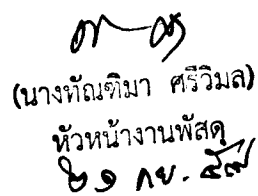 (นางทัณฑิมา ศรีวิมล)
หัวหน้างานพัสดุ
๒๑ กย. ๕๗